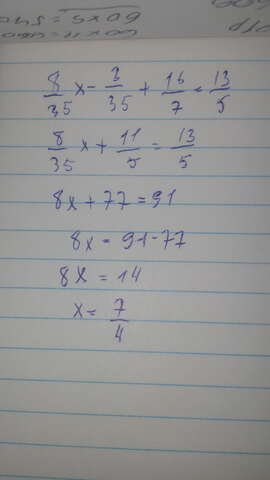 8/35 x - 3/35 + 16/7 = 13/5
8/35 x + 11/5 = 13/5
8x + 77 = 91
8x = 91-77
8x = 14
x = 7/4